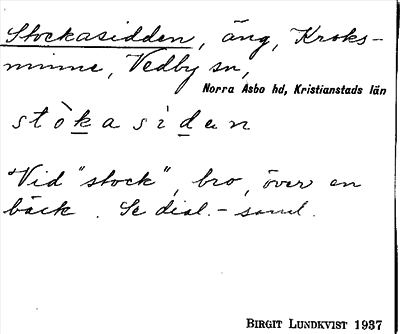 Stockasidden, äng, Kroks-
minne, Vedby sn,
Norra Åsbo hd, Kristianstads län
stò̀kasìdan
Vid "stock", bro, över en
bäck. Se dial.-saml.
BIRGIT LUNDKVIST 1937